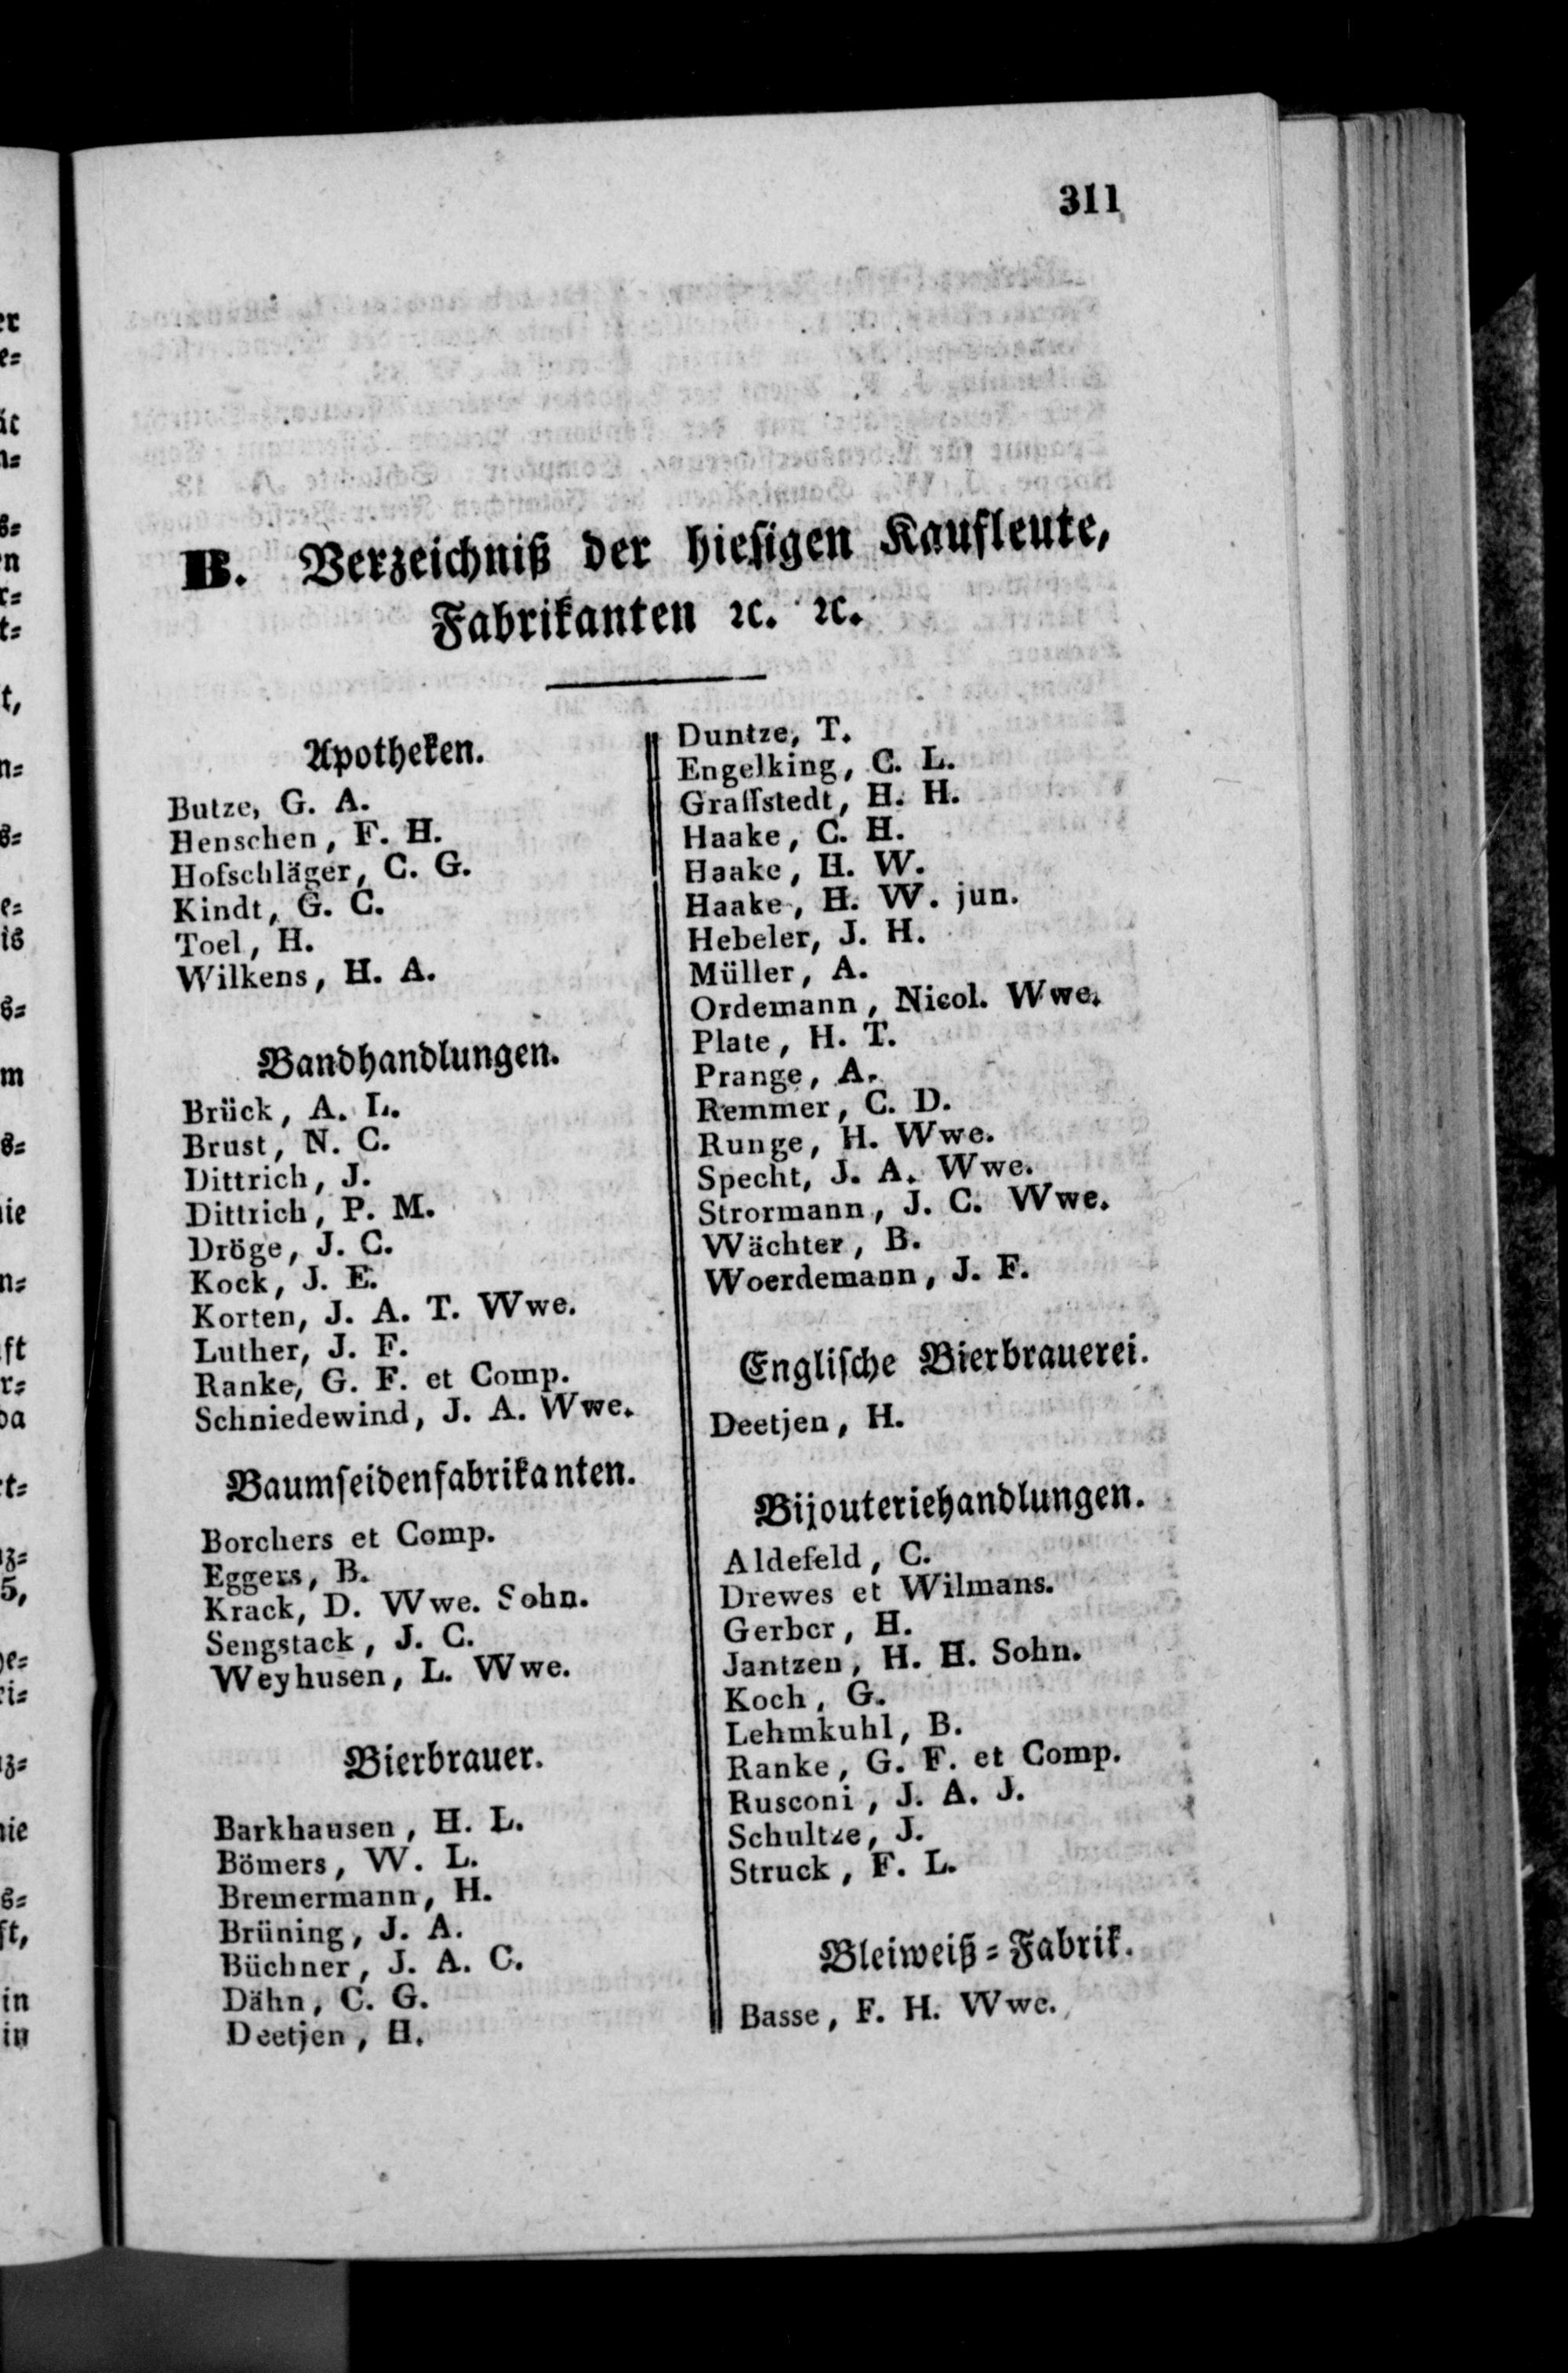 311
B. Verzeichniß der hiesigen Kaufleute,
Fabrikanten ꝛc. ꝛc.
Apotheken.
Butze, G. A.
Henschen, F. H.
Hofschläger, C. G.
Kindt, G. C.
Toel, H.
Wilkens, H. A.
Bandhandlungen.
Brück, A. L.
Brust, N. C.
Dittrich, J.
Dittrich, P. M.
Dröge, J. C.
Kock, J. E.
Korten, J. A. T. Wwe.
Luther, J. F.
Ranke, G. F. et Comp.
Schniedewind, J. A. Wwe.
Baumseidenfabrikanten.
Borchers et Comp.
Eggers, B.
Krack, D. Wwe. Sohn.
Sengstack, J. C.
Weyhusen, L. Wwe.
Bierbrauer.
Barkhausen, H. L.
Bömers, W. L.
Bremermann, H.
Brüning, J. A.
Büchner, J. A. C.
Dähn, C. G.
Deetjen, H.
Duntze, T.
Engelking, C. L.
Graffstedt, H. H.
Haake, C. H.
Haake, H. W.
Haake, H. W. jun.
Hebeler, J. H.
Müller, A.
Ordemann, Nicol. Wwe.
Plate, H. T.
Prange, A.
Remmer, C. D.
Runge, H. Wwe.
Specht, J. A. Wwe.
Strormann, J. C. Wwe.
Wächter, B.
Woerdemann, J. F.
Englische Bierbrauerei.
Deetjen, H.
Bijouteriehandlungen.
Aldefeld, C.
Drewes et Wilmans.
Gerber, H.
Jantzen, H. H. Sohn.
Koch, G.
Lehmkuhl, B.
Ranke, G. F. et Comp.
Rusconi, J. A. J.
Schultze, J.
Struck, F. L.
Bleiweiß-Fabrik.
Basse, F. H. Wwe.